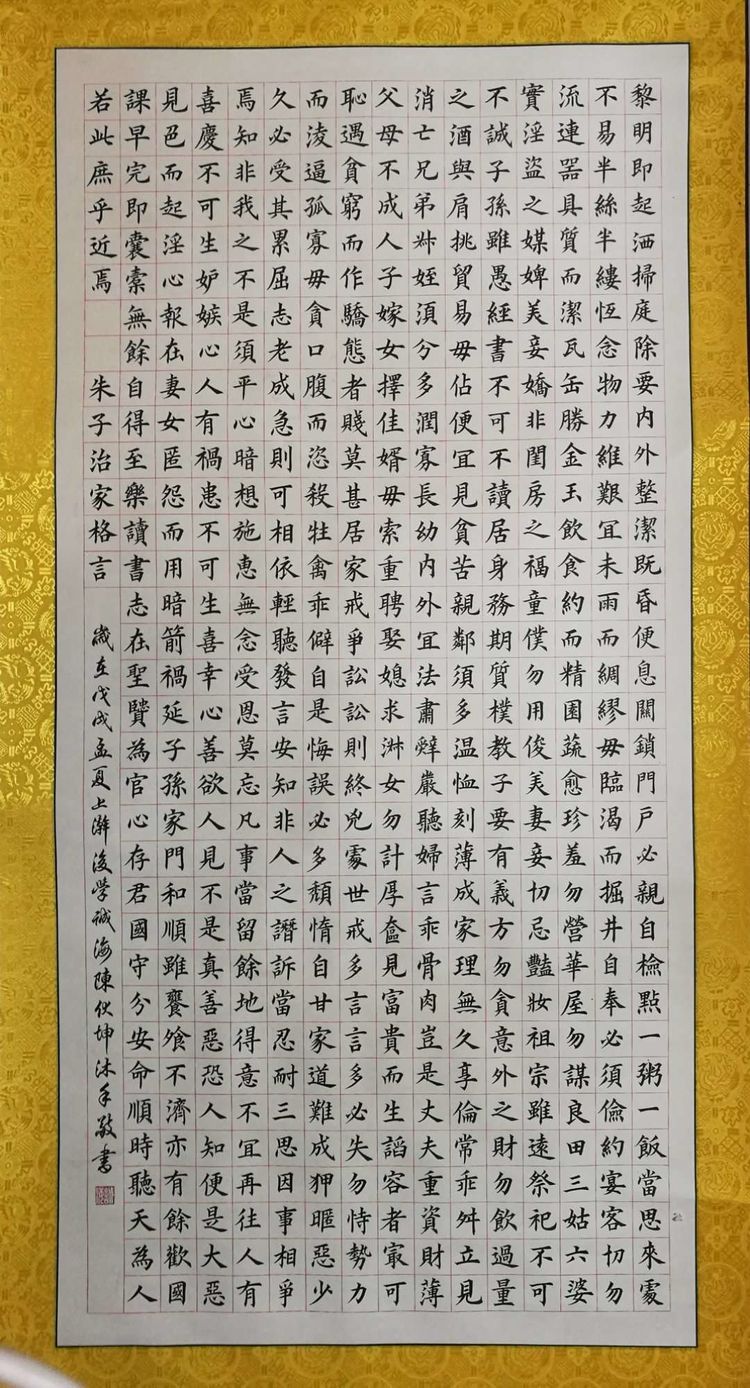 黎明即起洒掃庭除要內外整潔既昏便息關鎖門戶必親自檢點一粥一飯當思來處
不易半絲半縷恆念物力維艱宜未雨而綢繆毋臨渴而掘井自奉必須儉約宴客切勿
流連器具質而潔瓦缶勝金玉飲食約而精園蔬愈珍羞勿營華屋勿謀良田三姑六婆
實淫盜之媒婢美妾嬌非閨房之福童僕勿用俊美妻妾切忌豔妝祖宗雖遠祭祀不可
不誠子孫雖愚經書不可不讀居身務期質樸教子要有義方勿貪意外之財勿飲過量
之酒與肩挑貿易毋佔便宜見貧苦親鄰須多温恤刻薄成家理無久享倫常乖舛立見
消亡兄弟叔姪須分多潤寡長幼內外宜法肅辭嚴聽婦言乖骨肉豈是丈夫重資財薄
父母不成人子嫁女擇佳婿毋索重聘娶媳求淑女勿計厚奩見富貴而生諂容者冣可
恥遇貧窮而作驕態者賤莫甚居家戒爭訟訟則終凶處世戒多言言多必失勿恃勢力
而淩逼孤寡毋貪口腹而恣殺牲禽乖僻自是悔誤必多頹惰自甘家道難成狎暱惡少
久必受其累屈志老成急則可相依輕聽發言安知非人之譖訴當忍耐三思因事相爭
焉知非我之不是須平心暗想施惠無念受恩莫忘凡事當留餘地得意不宜再往人有
喜慶不可生妒嫉心人有禍患不可生喜幸心善欲人見不是真善惡恐人知便是大惡
見色而起淫心報在妻女匿怨而用暗箭禍延子孫家門和順雖饔飧不濟亦有餘歡國
課早完即囊橐無餘自得至樂讀書志在聖賢為官心存君國守分安命順時聽天為人
若此庶乎近焉 朱子治家格言
歲在戊戌孟夏上澣後學誠海陳伙坤沐手敬書